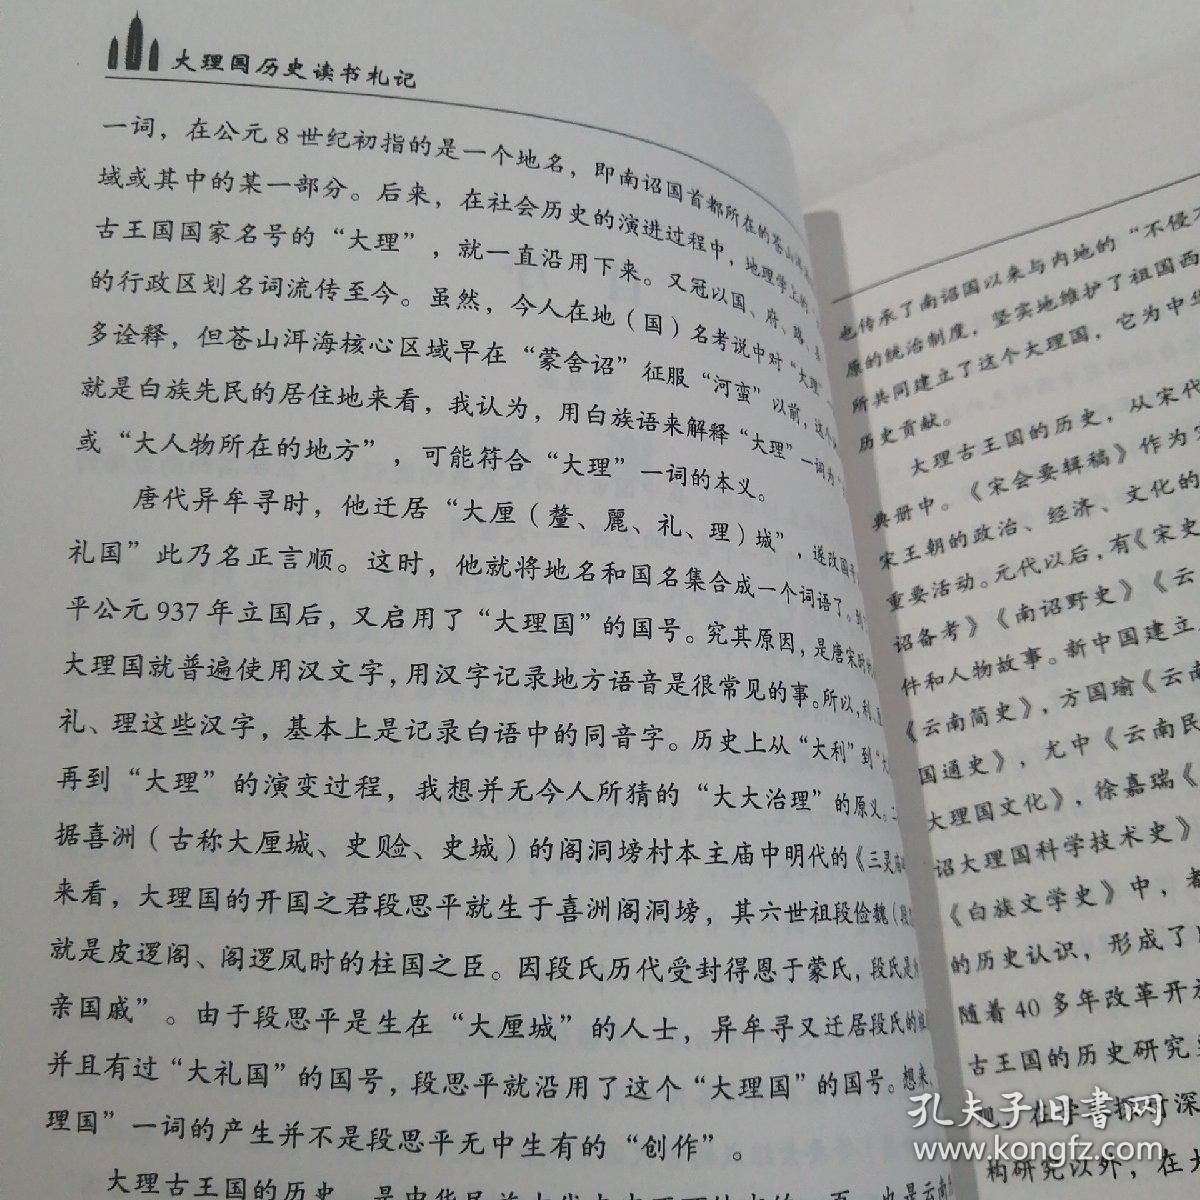 大理国历史读书札记
一词，在公元8世纪初指的是一个地名，即南诏国首都所在的苍山
域或其中的某一部分。后来，在社会历史的演进过程中，地理学上的
古王国国家名号的“大理”，就一直沿用下来。又冠以国、府、路、县
的行政区划名词流传至今。虽然，今人在地（国）名考说中对“大理”
多诠释，但苍山洱海核心区域早在“蒙舍诏”征服“河蛮”以前，这个
就是白族先民的居住地来看，我认为，用白族语来解释“大理”一词为
或“大人物所在的地方”，可能符合“大理”一词的本义。
唐代异牟寻时，他迁居“大厘（釐、麗、礼、理）城”，遂改国号
礼国”此乃名正言顺。这时，他就将地名和国名集合成一个词语了。到
平公元937年立国后，又启用了“大理国”的国号。究其原因，是唐宋时
大理国就普遍使用汉文字，用汉字记录地方语音是很常见的事。所以，利、
礼、理这些汉字，基本上是记录白语中的同音字。历史上从“大利”到
再到“大理”的演变过程，我想并无今人所猜的“大大治理”的原义。
据喜洲（古称大厘城、史赕、史城）的阁洞塝村本主庙中明代的《三灵庙
来看，大理国的开国之君段思平就生于喜洲阁洞塝，其六世祖段俭魏（段
就是皮逻阁、阁逻凤时的柱国之臣。因段氏历代受封得恩于蒙氏，段氏是
亲国戚”。由于段思平是生在“大厘城”的人士，异牟寻又迁居段氏的
并且有过“大礼国”的国号，段思平就沿用了这个“大理国”的国号。想来，
理国”一词的产生并不是段思平无中生有的“创作”。
大理古王国的历史，是中华民族
也传承了南诏国以来与内地的“不侵不
原的统治制度，坚实地维护了祖国西
所共同建立了这个大理国，它为中华
历史贡献。
大理古王国的历史，从宋代
典册中。《宋会要辑稿》作为
宋王朝的政治、经济、文化的
重要活动。元代以后，有《宋史
诏备考》《南诏野史》《云
件和人物故事。新中国建立
《云南简史》，方国瑜《云南
国通史》，尤中《云南民
大理国文化》，徐嘉瑞《
诏大理国科学技术史》
《白族文学史》中，
的历史认识，形成了
随着40多年改革开
古王国的历史研究
观，在学术探讨深
构研究以外，在大
孔夫子旧書网
www.kongfz.com